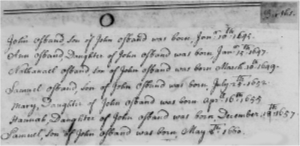 O
John Osband son of John Osband was born. Janʳ 10ᵗʰ 1645.
Ann Osband, Daughter of John Osband was born Janʳ 1647.
Nathanael Osband, son of John Osband was born March 10ᵗʰ 1649.
Samuel Osband, son of John Osband was born. July 2ᵗʰ 1652
Mary, Daughter of John Osband was born Apr. 16ᵗʰ 1655
Hannah Daughter of John Osband was born, December 19ᵗʰ 1657
Samuel, son of John Osband was born May 1660.